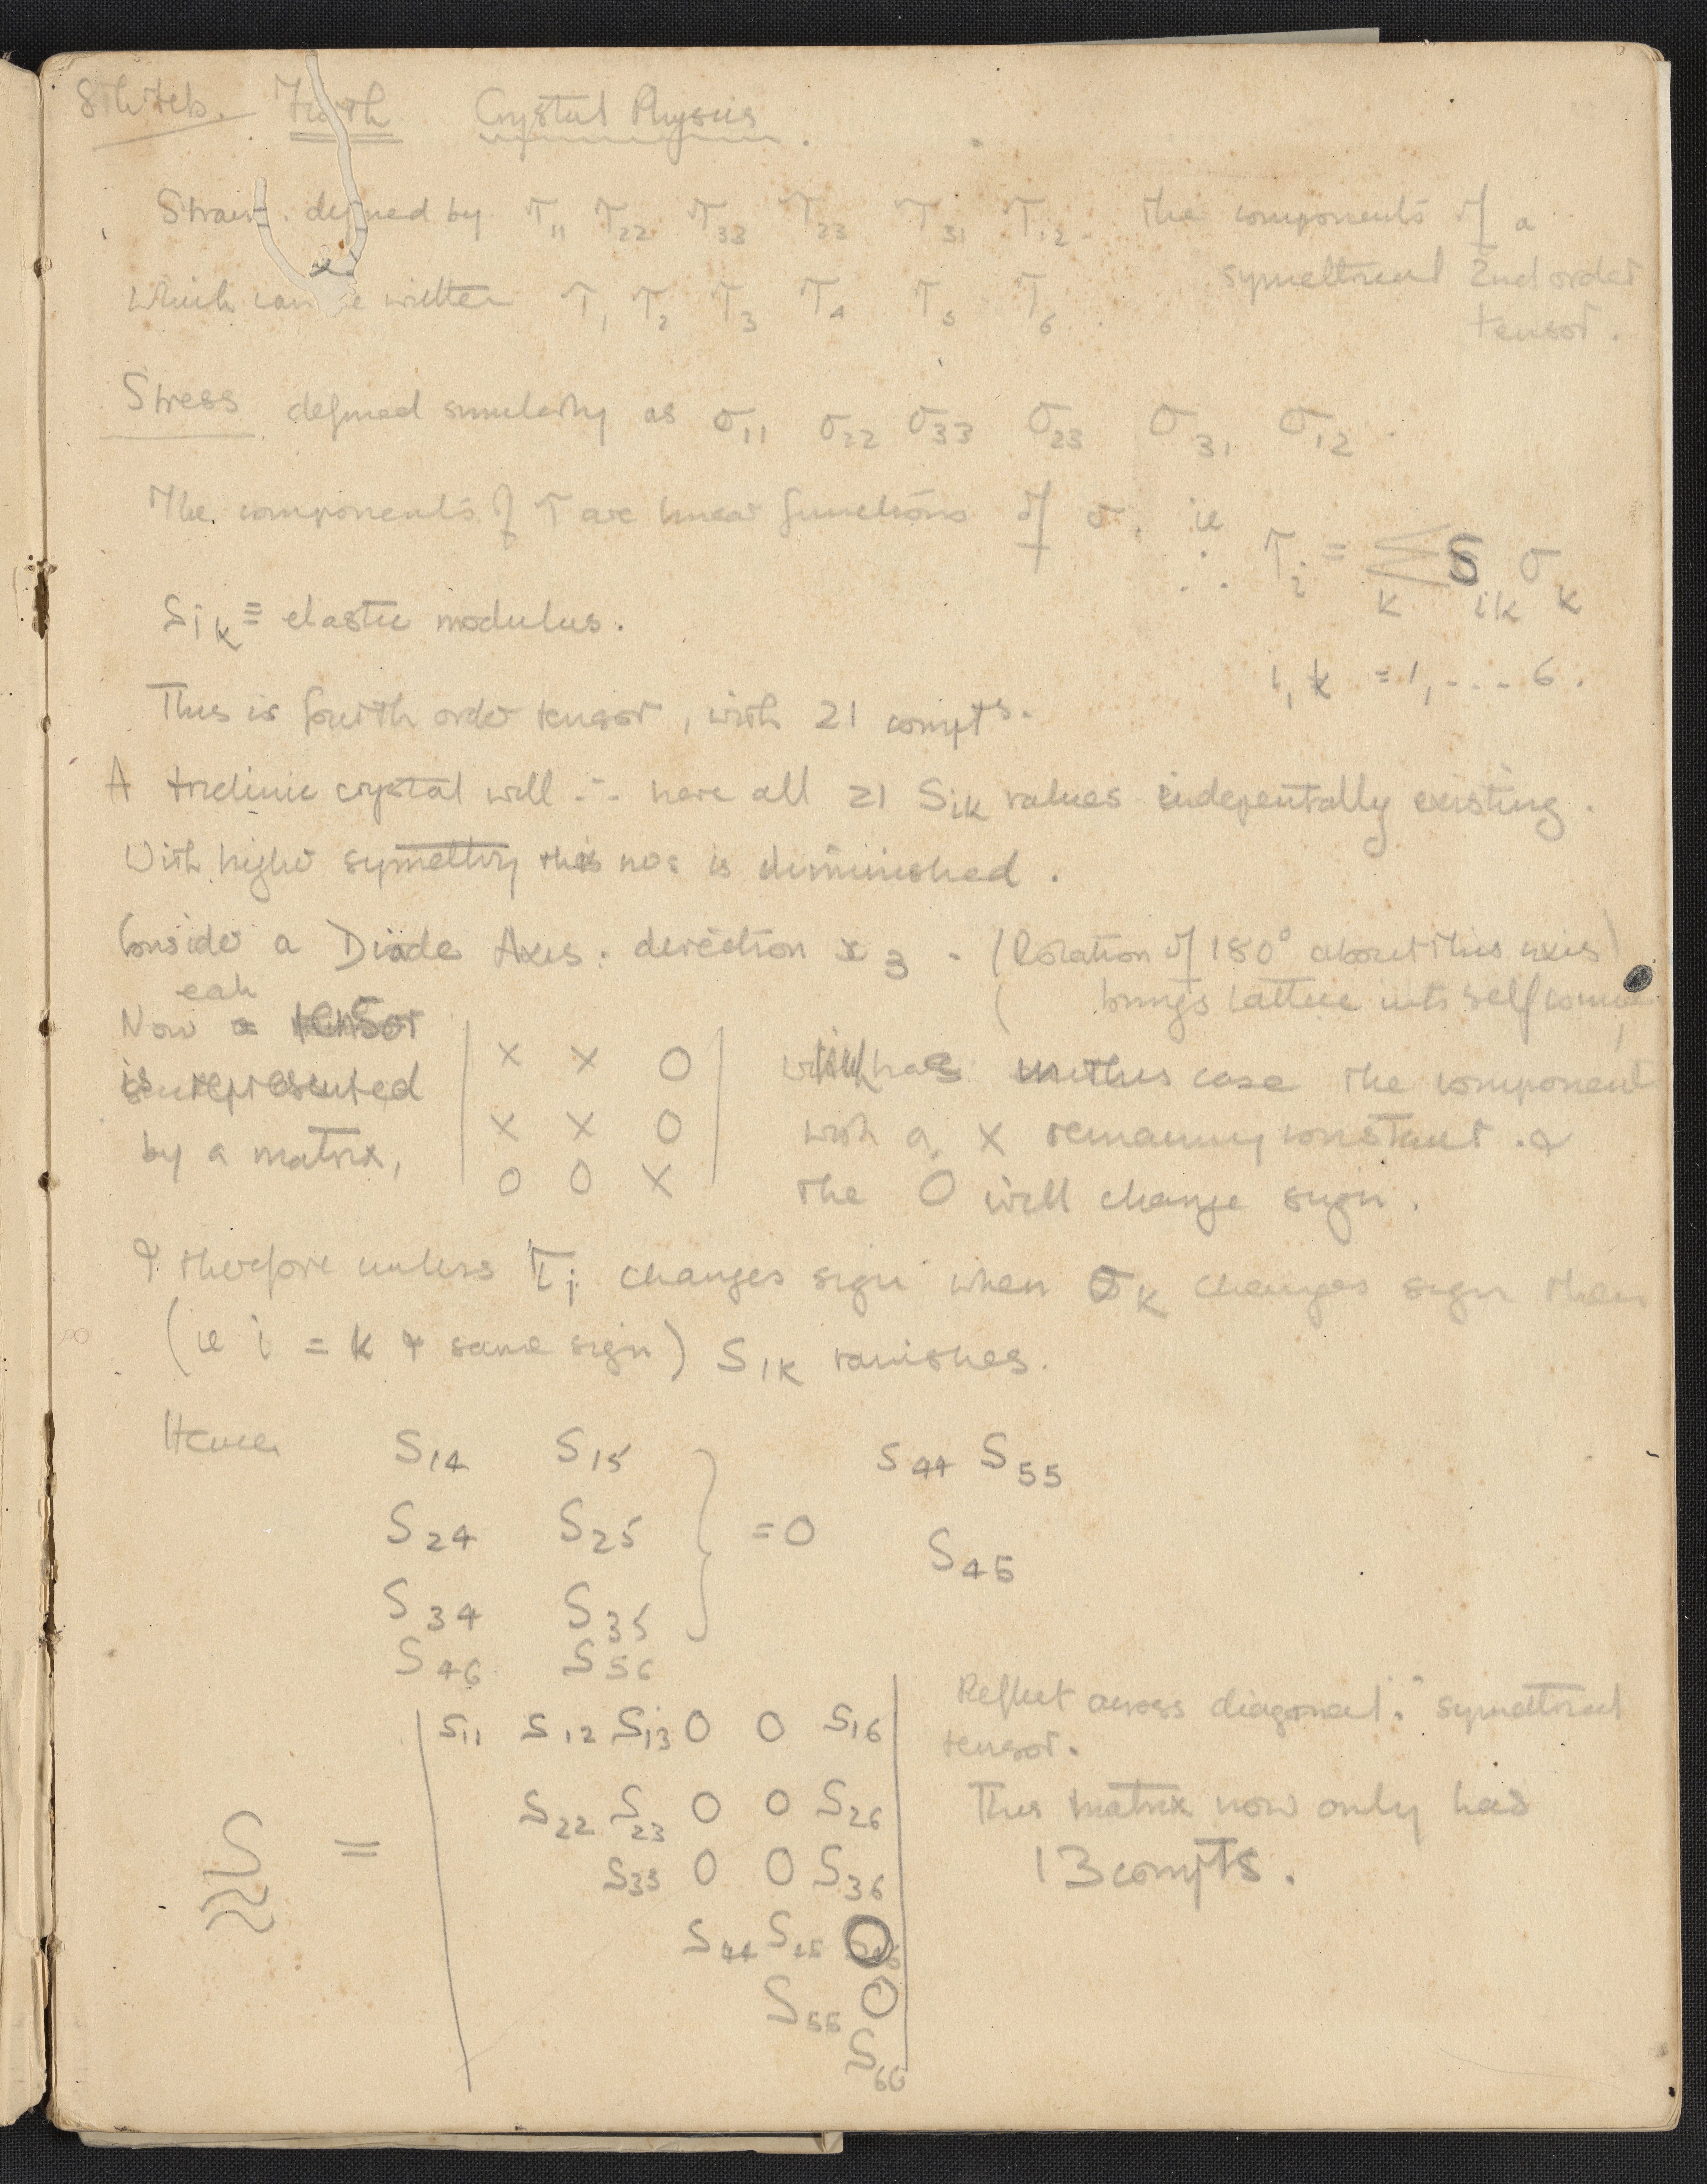 8th Feb. Furth Crystal Physics.
Strain defined by T₁₁ T₂₂ T₃₃ T₂₃ T₃₁ T₁₂. the components of a
symettrical 2nd order
tensor.
Which can be written T₁ T₂ T₃ T₄ T₅ T₆.
Stress defined similarly as σ₁₁ σ₂₂ σ₃₃ σ₂₃ σ₃₁ σ₁₂.
The components of T are linear functions of σ. ie
∴ Tᵢ = Σₖ Sᵢₖ σₖ
Sᵢₖ ≡ elastic modulus.
i, k = 1, - - - 6.
This is fourth order tensor, with 21 compts.
A triclinic crystal will ∴ have all 21 Sᵢₖ values indepentally existing.
With higher symettry this no: is diminished.
Consider a Diade Axis. direction x₃ - (Rotation of 180° about this axis)
( brings lattice into self
each
Now tensor
is represented
by a matrix,
| x x O |
| x x O |
| O O x |
in this case the component
with a x remaining constant. &
the O will change sign.
& therefore unless Tᵢ changes sign when σₖ changes sign then
(ie i = k & same sign) Sᵢₖ vanishes.
Hence
S₁₄ S₁₅
S₂₄ S₂₅ } = 0
S₃₄ S₃₅
S₄₆ S₅₆
S₄₄ S₅₅
S₄₅
S =
S₁₁ S₁₂ S₁₃ O O S₁₆
S₂₂ S₂₃ O O S₂₆
S₃₃ O O S₃₆
S₄₄ S₄₅ O
S₅₅ O
S₆₆
Reflect across diagonal ∵ symettrical
tensor.
This matrix now only has
13 compts.